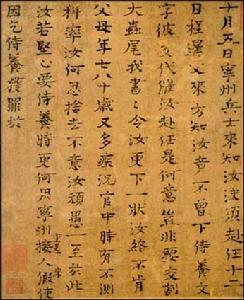 十月五日寧州兵士來知汝決須赴任十二
日程遇又來方知汝者一不曾下侍養文
字彼交代催汝赴任是何意豈非要交割
大蟲尾我書令汝更下一狀汝終不肯
父母年七八十歲又多疾況官中時有不測
科率汝何忍捨去不意汝頑愚一至於此
汝若堅心要侍養時更何用寧州接人假使
因乞侍養獲罪於